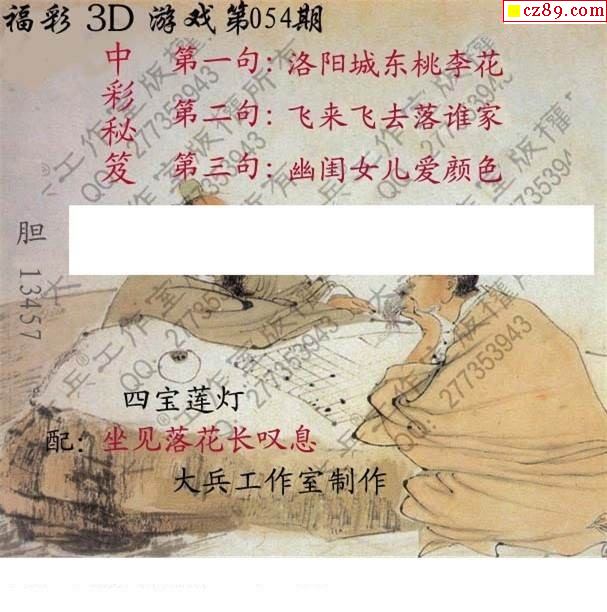 福彩 3D 游戏第054期
cz89.com
中彩秘笈
第一句：洛阳城东桃李花
第二句：飞来飞去落谁家
第三句：幽闺女儿爱颜色
胆 13457
四宝莲灯
配：坐见落花长叹息
大兵工作室制作
大兵®工作室版权所有
QQ：277353943